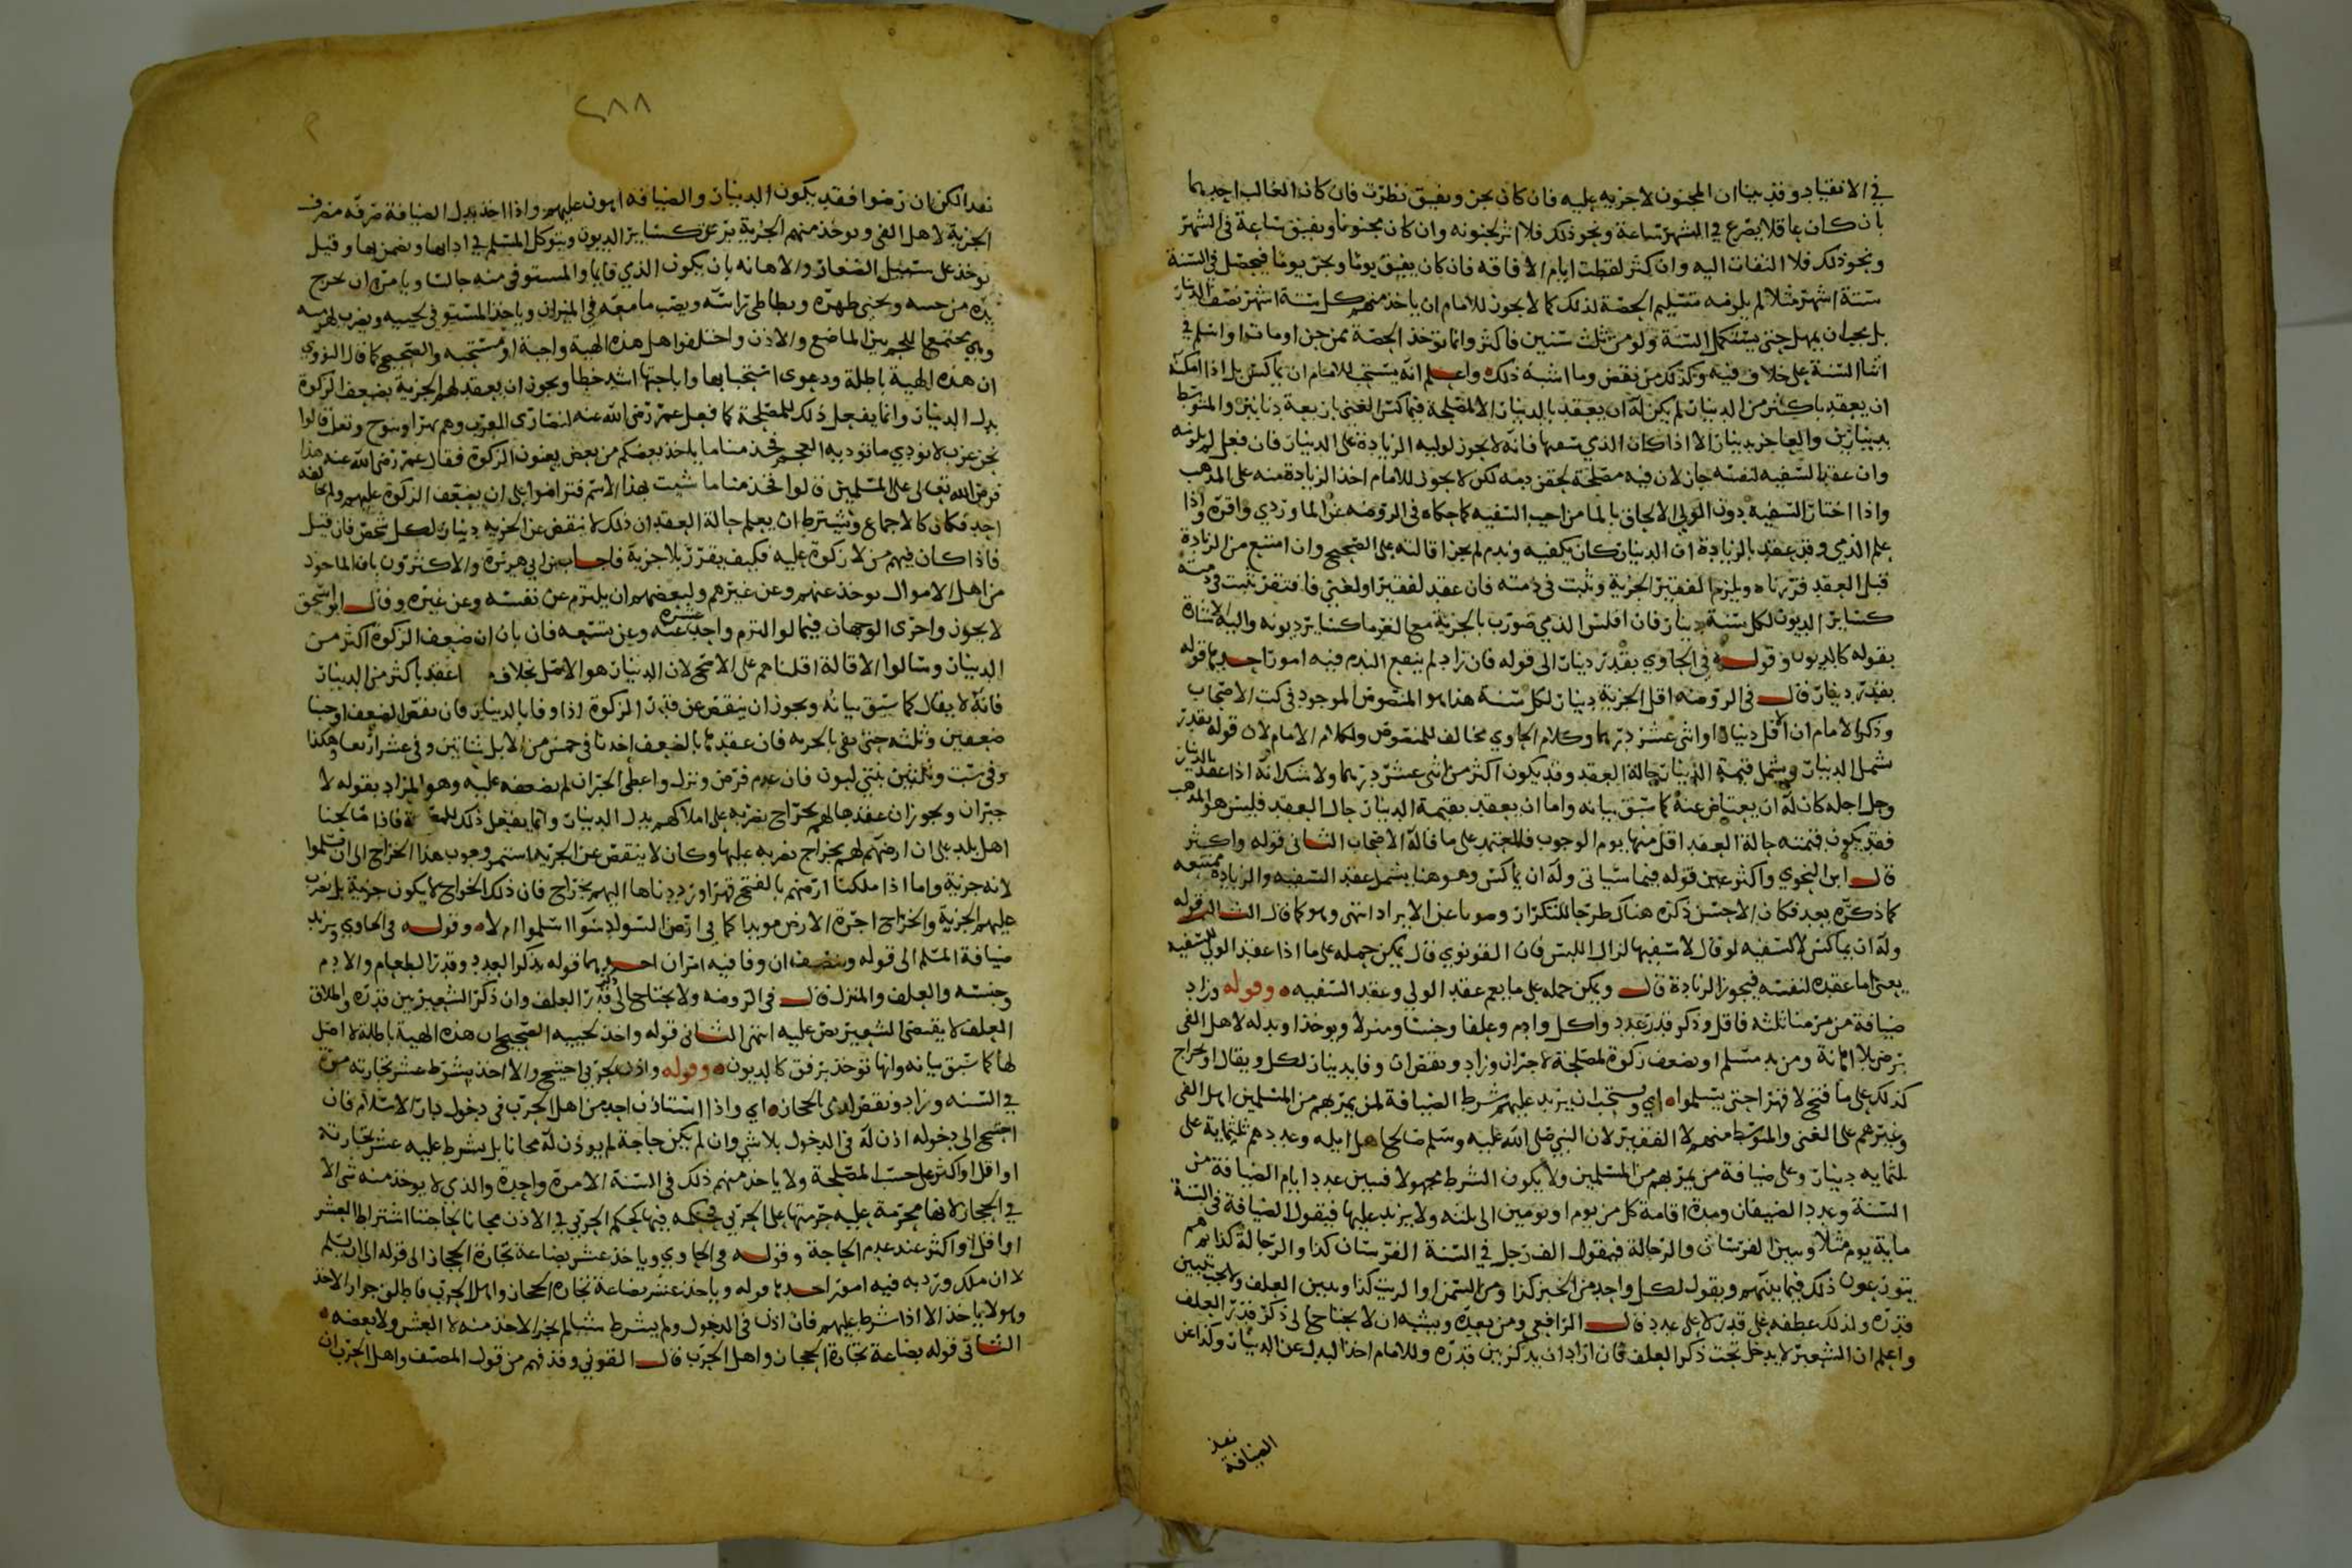 في الانقياد وقد بينا ان المجنون لا جزيه عليه فان كان يجن ويفيق نظرت فان كان الغالب احدهما
بان كان عاقلا يصرع في الشهر ساعة ونحو ذلك فلا اثر لجنونه وان كان مجنونا ويفيق ساعة في الشهر
ونحو ذلك فلا التفات اليه وان كثر لقطت ايام الافاقه فان كان يفيق يوما ويجن يوما فيحصل في السنة
ستة اشهر مثلا لم يلزمه تسليم الحصة لذلك كما لا يجوز للامام ان ياخذ منهم كل ستة اشهر نصف الدينار
بل يجب ان يمهل حتى يستكمل السنة ولو من ثلث سنين فاكثر وانما توخذ الحصة ممن جن او مات او اسلم في
اثنا السنة على خلاف فيه وكذلك من نقض وما اشبه ذلك واعلم انه يستحب للامام ان يماكس بل اذا امكنه
ان يعقد باكثر من الدينار لم يكن له ان يعقد بالدينار الا لمصلحة فيماكس الغني باربعة دنانير والمتوسط
بدينارين والعاجز بدينار الا اذا كان الذي سفيها فانه لا يجوز لوليه الزيادة على الدينار فان فعل لم يلزمه
وان عقد السفيه لنفسه جاز لان فيه مصلحة لحقن دمه لكن لا يجوز للامام اخذ الزيادة منه على المذهب
واذا اختار السفيه دون الولي الالحاق بالمامن اجيب السفيه كما حكاه في الروضه عن الماوردي واقره واذا
علم الذمي وقد عقد بالزيادة ان الدينار كان يكفيه وندم لم يجز اقالته على الصحيح وان امتنع من الزيادة
قبل العقد قررناه ويلزم الفقير الجزية وتثبت في ذمته فان عقد لفقير او لغني فافتقر تثبت في ذمته
كساير الديون لكل سنة دينار فان افلس الذمي ضورب بالجزية مع الغرما كساير ديونه واليه الاشارة
بقوله كالديون وقوله في الحاوي بقدر دينار الى قوله فان زاد لم ينفع الندم فيه امور احدها قوله
بقدر دينار قال في الروضه اقل الجزية دينار لكل سنة هذا هو المنصوص الموجود في كتب الاصحاب
وذكر الامام ان الاقل دينار او اثنى عشر درهما وكلام الحاوي مخالف للمنصوص ولكلام الامام لان قوله بقدر
شمل الدينار وشمل قيمة الدينار حالة العقد وقد يكون اكثر من اثنى عشر درهما ولا شك انه اذا عقد بالدينار
وحل اجله كان له ان يعتاض عنه كما سبق بيانه واما ان يعقد بقيمة الدينار حال العقد فليس هو المذهب
فقد يكون قيمته حالة العقد اقل منها يوم الوجوب فالمعتمد على ما قاله الاصحاب الثاني قوله واكثر
قال ابن النحوي واكثر عين قوله فيما سياتي وله ان يماكس وهو هنا يشمل عقد السفيه والزيادة ممتنعه
كما ذكره بعد فكان الاحسن ذكره هناك طرحا للتكرار وصونا عن الايراد انتهى وهو كما قال الثالث قوله
وله ان يماكس لا لسفيه لو قال لا سفيها لزال اللبس فان القونوي قال يمكن حمله على ما اذا عقد الولي للسفيه
يعني اما عقده لنفسه فيجوز الزيادة قال ويمكن حمله على ما يعم عقد الولي وعقد السفيه وقوله وزاد
ضيافة من مر منا ثلثه فاقل وذكر قدر عدد واكل وادم وعلفا وجنسا ومنزلا ويوخذ او بدله لاهل الفى
برضى بلا اهانة ومن يد مسلم او بضعف زكوة لمصلحة لا جبران وزاد ونقص ان وفا بدينار لكل ويقال او بخراج
كذلك على ما فتح لا قهرا حتى يسلموا اي ويستحب ان يزيد عليهم شرط الضيافة لمن يمر بهم من المسلمين اهل الفى
وغيرهم على الغنى والمتوسط منهم لا الفقير لان النبي صلى الله عليه وسلم صالح اهل ايله وعددهم ثلثماية على
ثلثمايه دينار وعلى ضيافة من يمر بهم من المسلمين ولا يكون الشرط مجهولا فيبين عدد ايام الضيافة من
السنة وعدد الضيفان ومدة اقامة كل من يوم او يومين الى ثلثه ولا يزيد عليها فيقول الضيافة في السنة
ماية يوم مثلا ويبين الفرسان والرجالة فيقول الف رجل في السنة الفرسان كذا والرجالة كذا ثم هم
يتوزعون ذلك فيما بينهم ويقول لكل واحد من الخبز كذا ومن السمن او الزيت كذا ويبين العلف ولا يجب تبيين
قدره ولذلك عطفه على قدر لا على عدد قال الرافعي ومن بعده ويشبه ان لا يحتاج الى ذكر قدر العلف
واعلم ان الشعير لا يدخل تحت ذكر العلف فان اراد ان يذكر بين قدره وللامام اخذ البدل عن الدينار وكذا عن
الضيافة نعم
٢٨٨
نعم الكن ان رضوا فقد يكون الدينار والضيافه اهون عليهم واذا اخذ بدل الضيافة صرفه مصرف
الجزية لاهل الفى وتوخذ منهم الجزية برفق كساير الديون ويتوكل المسلم في ادايها ويضمن بها وقيل
توخذ على سبيل الصغار والاهانه بان يكون الذي قايما والمستوفى منه جالسا ويامره ان يخرج
يده من جيبه ويحني ظهره ويطاطى راسه ويصب ما معه في الميزان وياخذ المستوفي لحيته ويضرب لهزمته
وهي مجتمع اللحم بين الماضغ والاذن واختلفوا هل هذه الهيئة واجبة او مستحبه والصحيح كما قال النووي
ان هذه الهيئة باطلة ودعوى استحبابها واباحتها اشد خطا ويجوز ان يعقد لهم الجزية بضعف الزكوة
بدل الدينار وانما يفعل ذلك للمصلحة كما فعل عمر رضي الله عنه لنصارى العرب وهم بهرا وتنوخ وتغلب قالوا
نحن عرب لا نودي ما توديه العجم فخذ منا ما ياخذ بعضكم من بعض يعنون الزكوة فقال عمر رضي الله عنه هذا
فرض الله تعالى على المسلمين قالوا فخذ منا ما شيت بهذا الاسم فتراضوا على ان يضعف الزكوة عليهم ولم يخالفه
احد فكان كالاجماع ويشترط ان يعلم حالة العقد ان ذلك لا ينقص عن الجزيه دينار لكل شخص فان قيل
فاذا كان فيهم من لا زكوة عليه فكيف يقرر بلا جزية فاجاب ابن ابي هريرة والاكثرون بان الماخوذ
من اهل الاموال يوخذ عنهم وعن غيرهم ولبعضهم ان يلتزم عن نفسه وعن غيره وقال ابو اسحق
لا يجوز واجرى الوجهان فيما لو التزم واحد عشره عنه وعن تسعه فان بان ان ضعف الزكوة اكثر من
الدينار وسالوا الاقالة اقلناهم على الاصح لان الدينار هو الاصل بخلاف اعقد باكثر من الدينار
فانه لا يقال كما سبق بيانه ويجوز ان ينقص عن قدر الزكوة اذا وفا بالدينار فان نقص الضعف اوجبنا
ضعفين وثلثه حتى يفى بالجزيه فان عقد لهما بالضعف اخذنا في خمس من الابل شاتين وفي عشر اربعا وهكذا
وفي ست وثلثين بنتي لبون فان عدم فرض ونزل واعطى الجبران لم نضعفه عليه وهو المراد بقوله لا
جبران ويجوز ان عقدها لهم بخراج يضربه على املاكهم بدل الدينار وانما يفعل ذلك للمصلحة فاذا صالحنا
اهل بلد على ان ارضهم لهم بخراج نضربه عليها وكان لا ينقص عن الجزيه استمر وجوب هذا الخراج الى ان يسلموا
لانه جزية واما اذا ملكنا ارضهم بالفتح قهرا ورددناها اليهم بخراج فان ذلك الخراج لا يكون جزية بل يضرب
عليهم الجزية والخراج اجرة الارض موبدا كما في ارض السواد سوا اسلموا ام لا وقوله في الحاوي ويزيد
ضيافة المسلم الى قوله وينصف ان وفا فيه امران احدهما قوله يذكر العدد وقدر الطعام والادم
وجنسه والعلف والمنزل قال في الروضه ولا يحتاج الى ذكر قدر العلف وان ذكر الشعير بين قدره واطلاق
العلف لا يقتضي الشعير نص عليه انتهى الثاني قوله واخذ لحيته الصحيح ان هذه الهيئة باطلة لا اصل
لها كما سبق بيانه وانها توخذ برفق كالديون وقوله واذن لحربي احتيج والا اخذ بشرط عشر تجارته مرة
في السنه وزاد ونقص لذي بالحجاز اي واذا استاذن احد من اهل الحرب في دخول دار الاسلام فان
احتيج الى دخوله اذن له في الدخول بلا شي وان لم يكن حاجة لم يوذن له مجانا بل يشرط عليه عشر تجارته
او اقل او اكثر على حسب المصلحة ولا ياخذ منهم ذلك في السنة الا مرة واحدة والذي لا يوخذ منه شي الا
في الحجاز لانها محرمة عليه حرمتها على الحربي فحكمه فيها كحكم الحربي في الاذن مجانا لحاجتنا اشتراط العشر
او اقل او اكثر عند عدم الحاجة وقوله في الحاوي وياخذ عشر بضاعة تجارة الحجاز الى قوله الى ان يسلم
لا ان ملك ورد به فيه امور احدها قوله وياخذ عشر بضاعة تجارة الحجاز واهل الحرب فاطلق جواز الاخذ
وهو لا ياخذ الا اذا شرط عليهم فان اذن في الدخول ولم يشرط شيا لم يجز الاخذ منه لا العشر ولا بعضه
الثاني قوله بضاعة تجارة الحجاز واهل الحرب قال القونوي وقد فهم من قول المصنف واهل الحرب ان